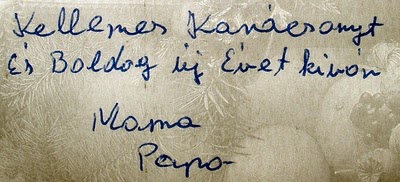 Kellemes Karácsonyt
És Boldog új Évet kíván
Mama
Papa